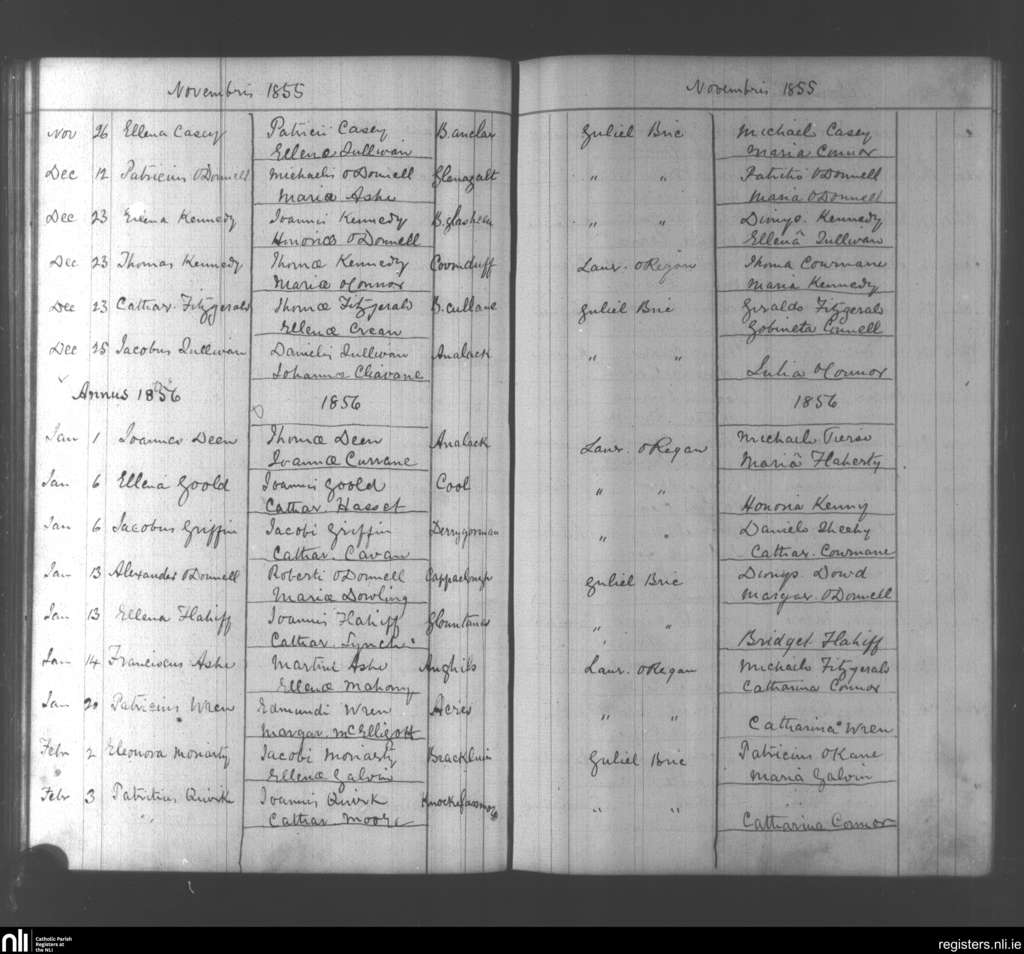 Novembris 1855
Nov 26 Ellena Casey Patricii Casey B.anclar
Ellenæ Sullivan
Dec 12 Patricius O'Donnell Michaelis O'Donnell Glenagalt
Mariæ Ashe
Dec 23 Ellena Kennedy Joannis Kennedy B.glasheen
Honoriæ O'Donnell
Dec 23 Thomas Kennedy Thomæ Kennedy Coumduff
Mariæ O'Connor
Dec 23 Cathar. Fitzgerald Thomæ Fitzgerald B.cullane
Ellenæ Crean
Dec 25 Jacobus Sullivan Danielis Sullivan Analack
Johannæ Cliavane
Annus 1856 1856
Jan 1 Joannes Deen Thomæ Deen Analack
Joannæ Currane
Jan 6 Ellena Goold Joannis Goold Cool
Cathar. Hasset
Jan 6 Jacobus Griffin Jacobi Griffin Derrygorman
Cathar. Cavan
Jan 13 Alexander O'Donnell Roberti O'Donnell
Mariæ Dowling
Jan 13 Ellena Flahiff Joannis Flahiff Glountanes
Cathar. Lynch
Jan 14 Franciscus Ashe Martini Ashe Aughils
Ellenæ Mahony
Jan 20 Patricius Wren Edmundi Wren Acres
Margar. McElligott
Febr 2 Eleonora Moriarty Jacobi Moriarty Brackluin
Ellenæ Galvin
Febr 3 Patritius Quirk Joannis Quirk Knockglassmore
" Cathar Moore
Novembris 1855
Guliel Bric Michaele Casey
Maria Connor
" " Patritio O'Donnell
Maria O'Donnell
" " Dionys. Kennedy
Ellenâ Sullivan
Laur. O'Regan Thoma Courmane
Maria Kennedy
Guliel Bric Geraldo Fitzgerald
Gobineta Connell
" "
Julia O'Connor
1856
Laur. O'Regan Michaele Tierse
Mariâ Flaherty
" "
Honoria Kenny
" " Daniele Sheehy
Cathar. Courmane
Guliel Bric Dionys. Dowd
Margar. O'Donnell
" "
Bridget. Flahiff
Laur. O'Regan Michaele Fitzgerald
Catharina Connor
" "
Catharina Wren
Guliel Bric Patricius O'Kane
Mariâ Galvin
" "
Catharina Connor
nli Catholic Parish
Registers at
the NLI
registers.nli.ie